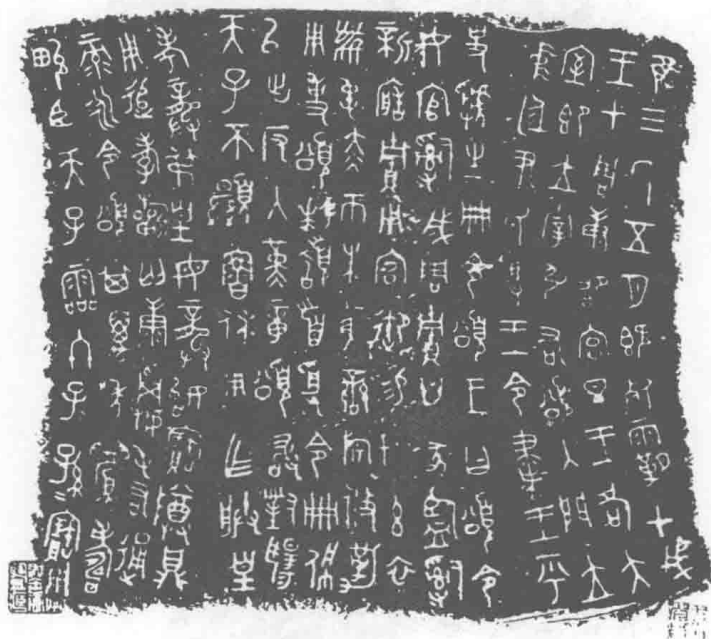 隹三年五月既死霸甲戌
王才周康卲宮旦王各大
室即立宰引右頌入門立
中廷尹氏受王令書王乎
史虢生冊令頌王曰頌令
女官𤔲成周貯廿家監𤔲
新造貯用宮御易女玄衣
黹屯赤巿朱黃䜌旂攸勒用
事頌拜𩒨首受令冊佩
以出反入堇章頌敢對揚
天子不顯魯休用乍朕皇
考龏弔皇母龏姒寶尊鼎
用追孝祈匄康𩛥屯右通
彔永令頌其萬年眉壽
畯臣天子霝冬子孫寶用